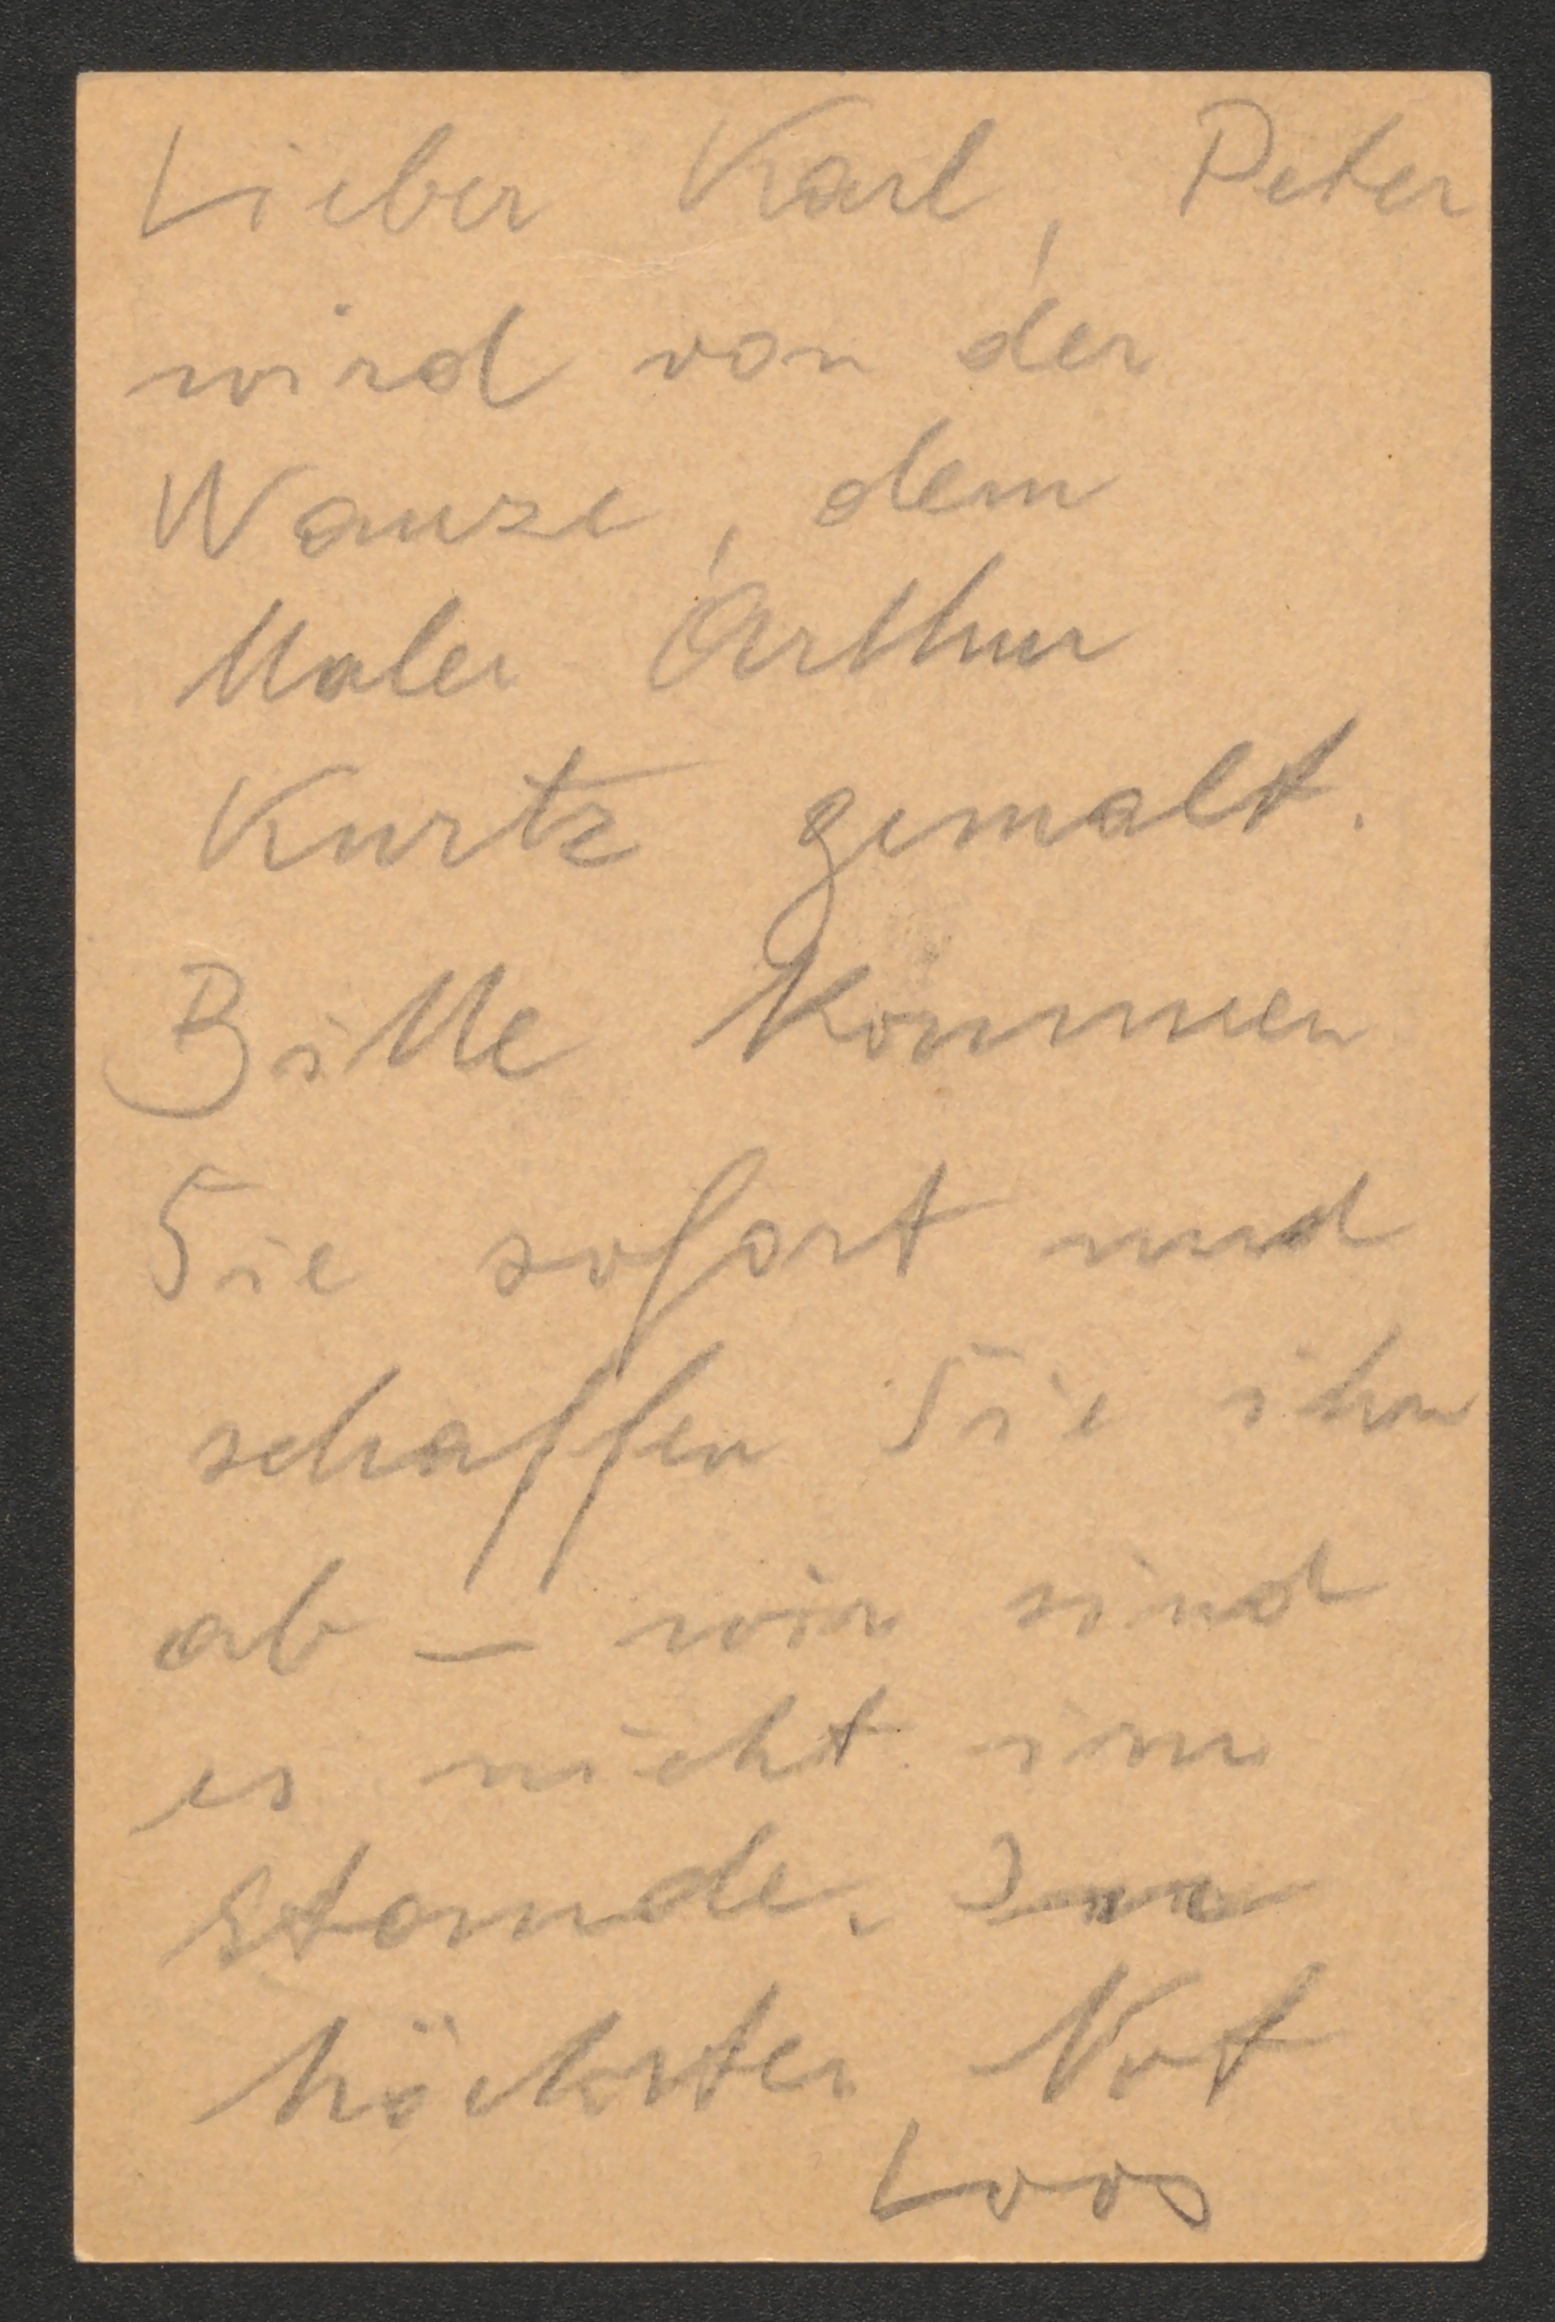 Lieber Karl, Peter
wird von der
Wanze, dem
Maler Arthur
Kurtz gemalt.
Bitte kommen
Sie sofort und
schaffen Sie ihn
ab – wir sind
es nicht im
stande. In
höchster Not
Loos